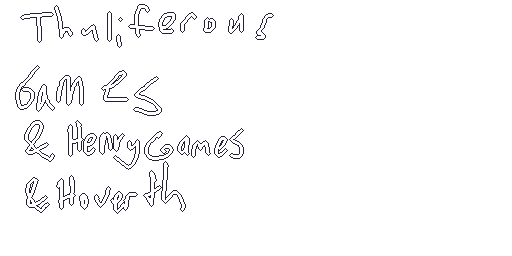 Thuliferous
Games
& HenryGames
& Hoverth